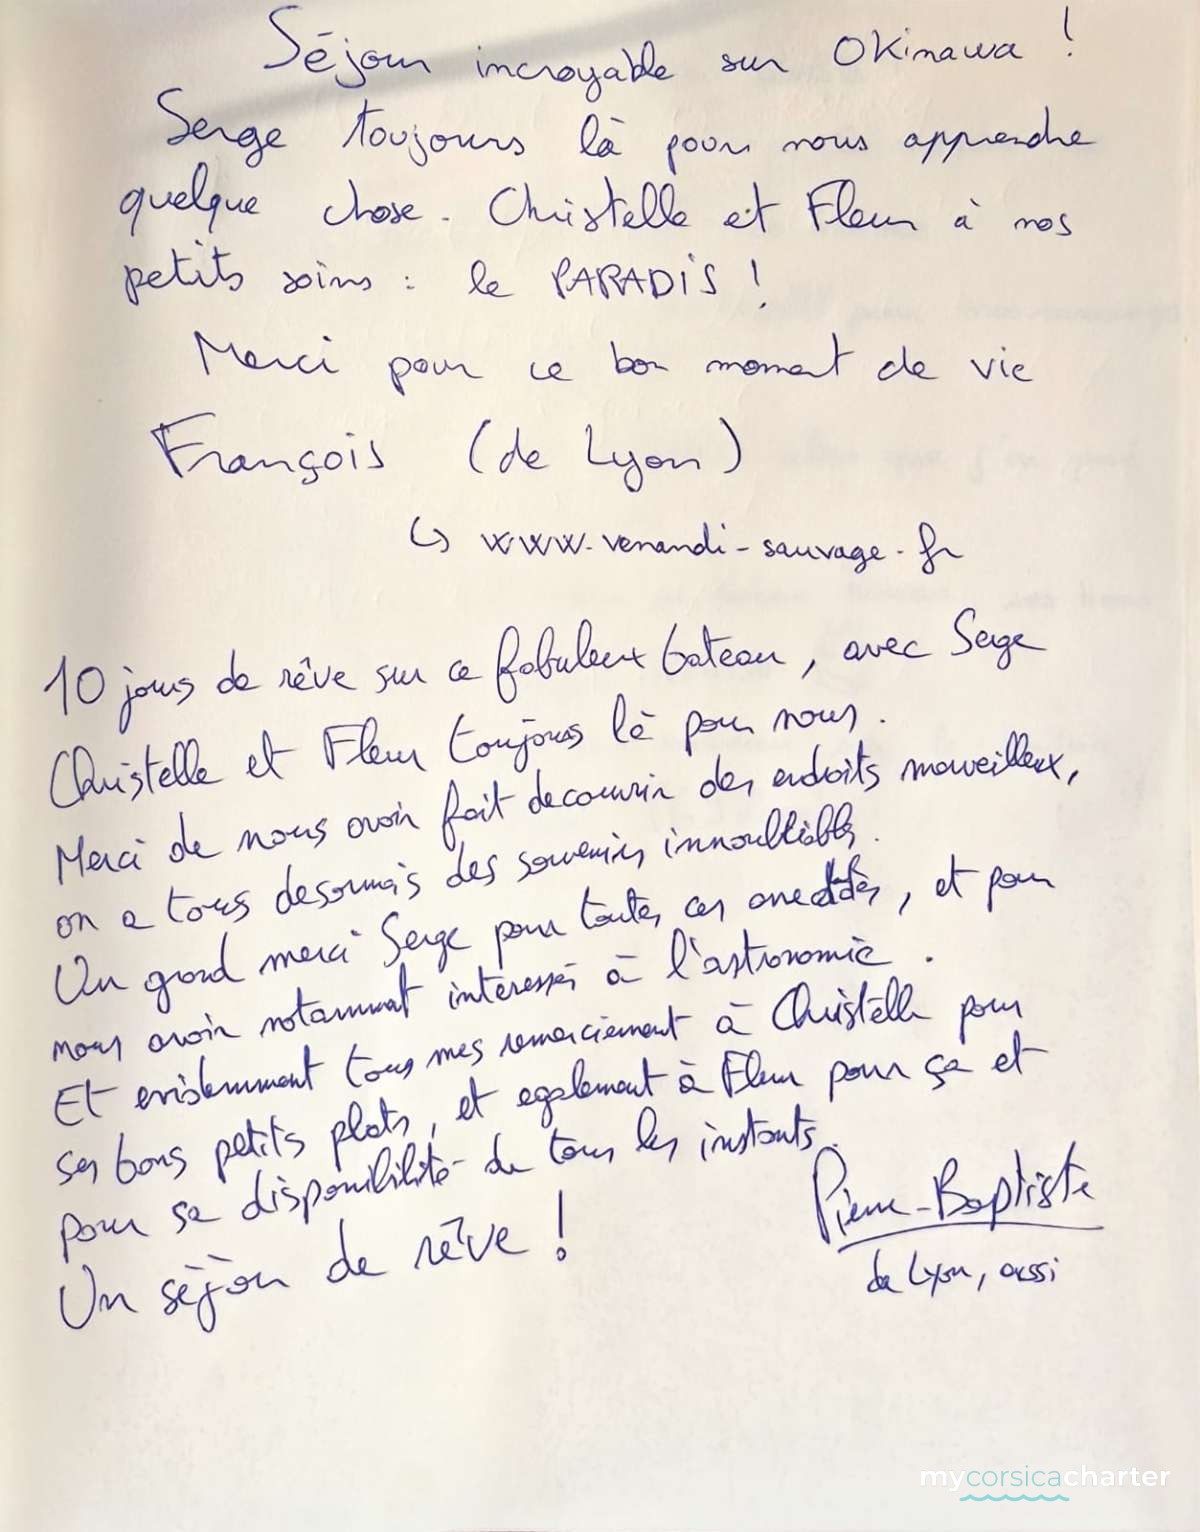 Séjour incroyable sur Okinawa !
Serge toujours là pour nous apprendre
quelque chose. Christelle et Fleur à nos
petits soins : le PARADIS !
Merci pour ce bon moment de vie
François (de Lyon)
↪ www.venandi-sauvage.fr
10 jours de rêve sur ce fabuleux bateau, avec Serge
Christelle et Fleur toujours là pour nous.
Merci de nous avoir fait decouvrir des endroits merveilleux,
on a tous desormais des souvenirs innoubliables.
Un grand merci Serge pour toutes ces anecdotes, et pour
nous avoir notamment interessés à l'astronomie.
Et evidemment tous mes remerciement à Christelle pour
ses bons petits plats, et egalement à Fleur pour ça et
pour sa disponibilité de tous les instants.
Un séjour de rêve !
Pierre-Baptiste
de Lyon, aussi
mycorsicacharter